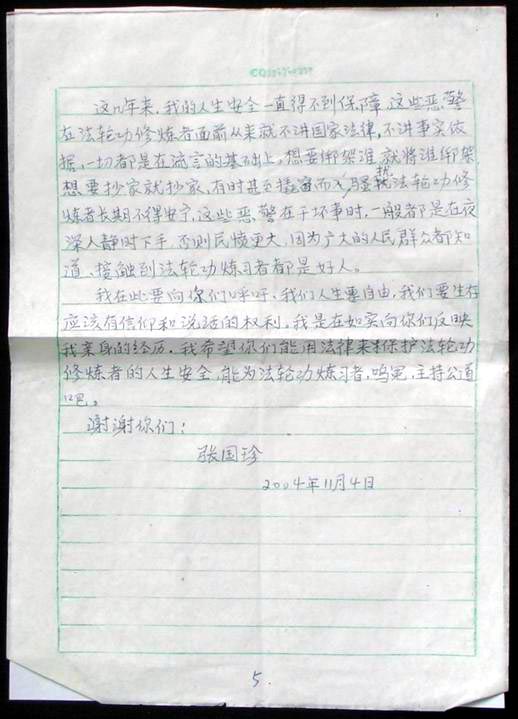 这几年来，我的人生安全一直得不到保障，这些恶警
在法轮功修炼者面前从来就不讲国家法律，不讲事实依
据，一切都是在流言的基础上，想要绑架谁就将谁绑架，
想要抄家就抄家，有时甚至撬窗而入，骚扰法轮功修
炼者长期不得安宁，这些恶警在干坏事时，一般都是在夜
深人静时下手，否则民愤更大，因为广大的人民群众都知
道，接触到法轮功炼习者都是好人。
我在此要向你们呼吁，我们人生要自由，我们要生存
应该有信仰和说话的权利，我是在如实向你们反映
我亲身的经历，我希望你们能用法律来保护法轮功
修炼者的人生安全，能为法轮功炼习者，鸣冤，主持公道
吧。
谢谢你们！
张国珍
2004年11月4日
5.